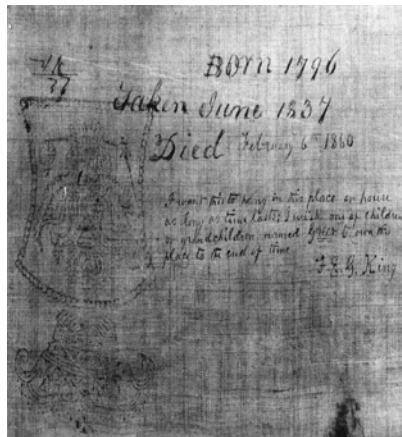 BORN 1796
Taken June 1837
Died February 6th 1860
I want this to hang in this place or house
as long as time lasts I wish one of children
or grandchildren named to own this
place to the end of time
F.E.G. King